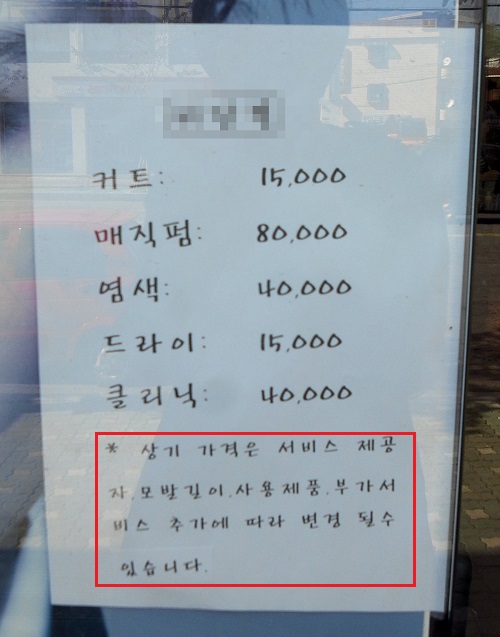 커트: 15,000
매직펌: 80,000
염색: 40,000
드라이: 15,000
클리닉: 40,000
* 상기 가격은 서비스 제공
자.모발길이.사용제품.부가서
비스 추가에 따라 변경 될수
있습니다.